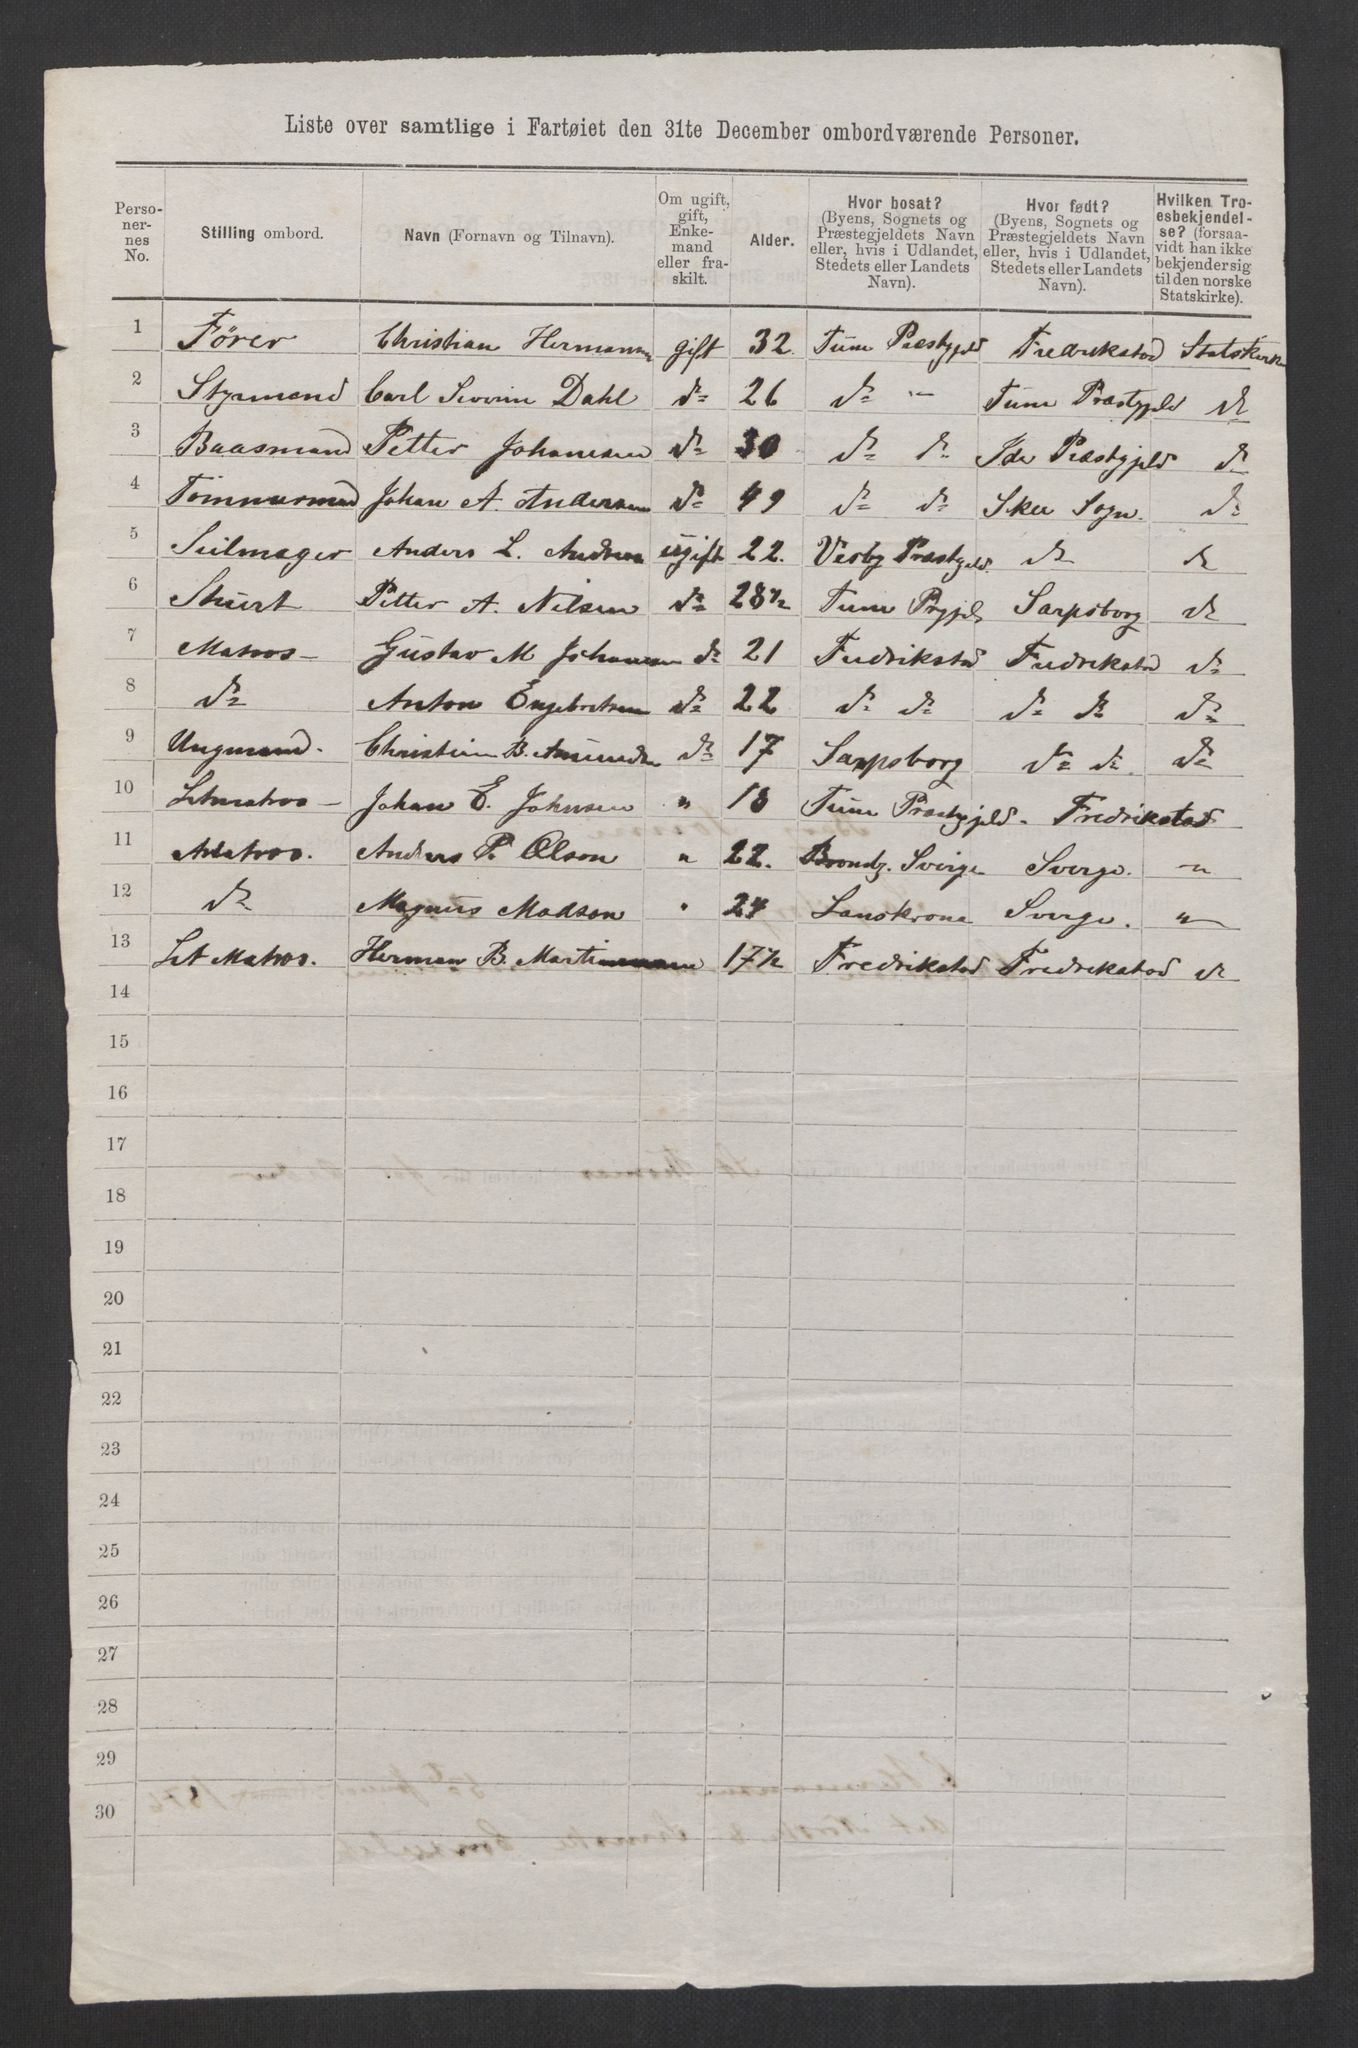 Liste over samtlige i Fartøiet den 31te December ombordværende Personer.
Perso-
ner-
nes
No.
Stilling ombord.
Navn (Fornavn og Tilnavn).
Om ugift,
gift,
Enke-
mand
eller fra-
skilt.
Alder.
Hvor bosat?
(Byens, Sognets og
Præstegjeldets Navn
eller, hvis i Udlandet,
Stedets eller Landets
Navn).
Hvor født?
(Byens, Sognets og
Præstegjeldets Navn
eller, hvis i Udlandet,
Stedets eller Landets
Navn).
Hvilken Tro-
esbekjendel-
se? (forsaa-
vidt han ikke
bekjender sig
til den norske
Statskirke).
1 Förer Christian Hermansen gift 32. Tune Præstgjeld Fredrikstad Statskirken
2 Styrmand Carl Severin Dahl do 26 do " Tune Præstgjeld do
3 Baasmand Petter Johansen do 30 do do Ide Præstgjeld do
4 Tömmermand Johan A. Andersen do 49 do do Skee Sogn. do
5 Seilmager Anders L. Andersen ugift 22. Præstgjeld. do do
6 Stuert Petter A. Nilsen do 28½ Tune Prgjd Sarpsborg do
7 Matros Gustav M Johansen do 21 Fredrikstad Fredrikstad do
8 do Anton Engebretsen do 22 do do do do do
9 Ungmand. Christian B. do 17 Sarpsborg do do. do
10 Letmatros Johan E. Johnsen " 18 Tune Præstgjeld. Fredrikstad
11 Matros. Anders P. Olson " 22. Sverige Sverge. "
12 do Magnus Madson " 24 Lanskrona Sverge. "
13 Let Matros. Herman B. Martinsen 17½ Fredrikstad Fredrikstad do
14
15
16
17
18
19
20
21
22
23
24
25
26
27
28
29
30